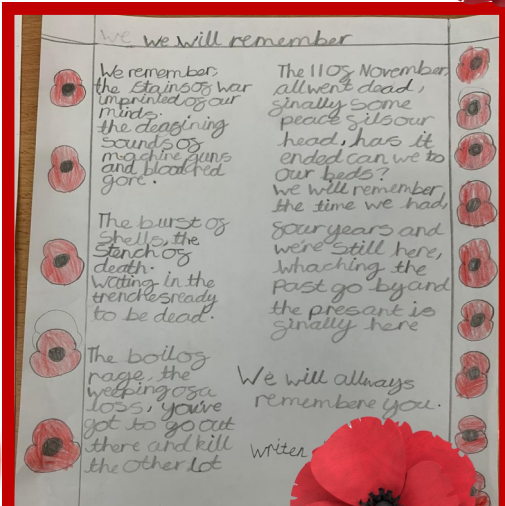 we we will remember
We remember,
the stains of war
imprinted of our
minds.
the deafining
sounds of
machine guns
and blood red
gore.
The burst of
shells, the
stench of
death.
Wating in the
trenches ready
to be dead.
The boil of
rage, the
weeping of a
loss, you've
got to go out
there and kill
the other lot
The 11 of November,
all went dead,
finally some
peace fils our
head, has it
ended can we to
our beds?
we will remember,
the time we had,
four years and
we're still here,
whaching the
past go by and
the presant is
finally here
We will allways
remembere you.
writen